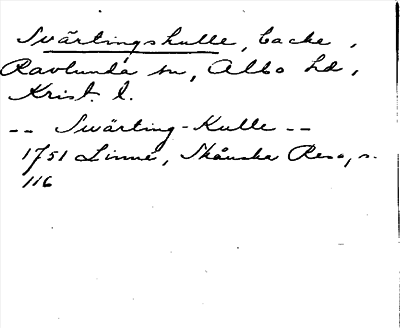 Svärtingskulle, backe,
Ravlunda sn, Albo hd,
Krist. l.
-- Swärting-Kulle --
1751 Linné, Skånska Resa, s.
116